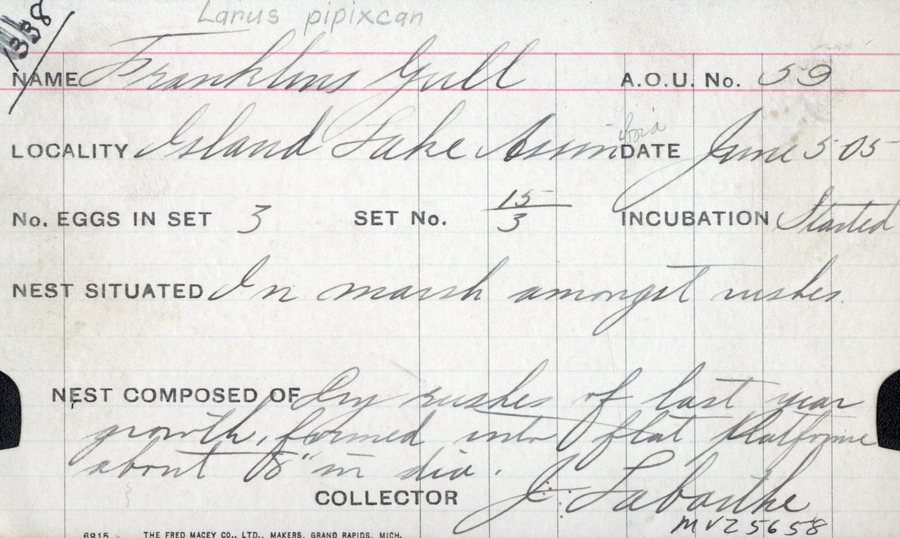 Larus pipixcan
1338
NAME Franklins Gull A.O.U. No. 59
LOCALITY Island Lake Assin DATE June 5 05
No. EGGS IN SET 3 SET No. 15/3 INCUBATION Started
NEST SITUATED In marsh amongst rushes.
NEST COMPOSED OF Dry rushes of last year
growth, formed into flat platforme
about 8" in dia.
COLLECTOR J. Labarthe
MVZ 5658
6815 THE FRED MACEY CO., LTD., MAKERS, GRAND RAPIDS, MICH.